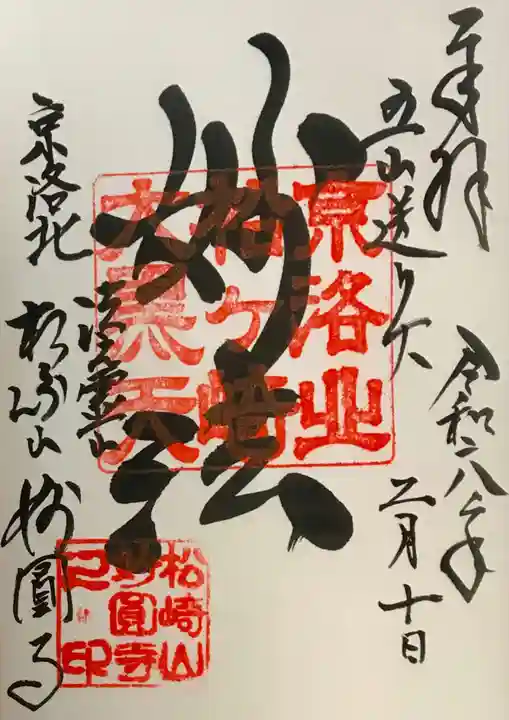 奉拝
令和八年
五山送り火
二月十日
妙法
京洛北
法霊山
松崎山 妙圓寺
京洛北
松ヶ崎
大黒天
松崎山
妙圓寺
之印